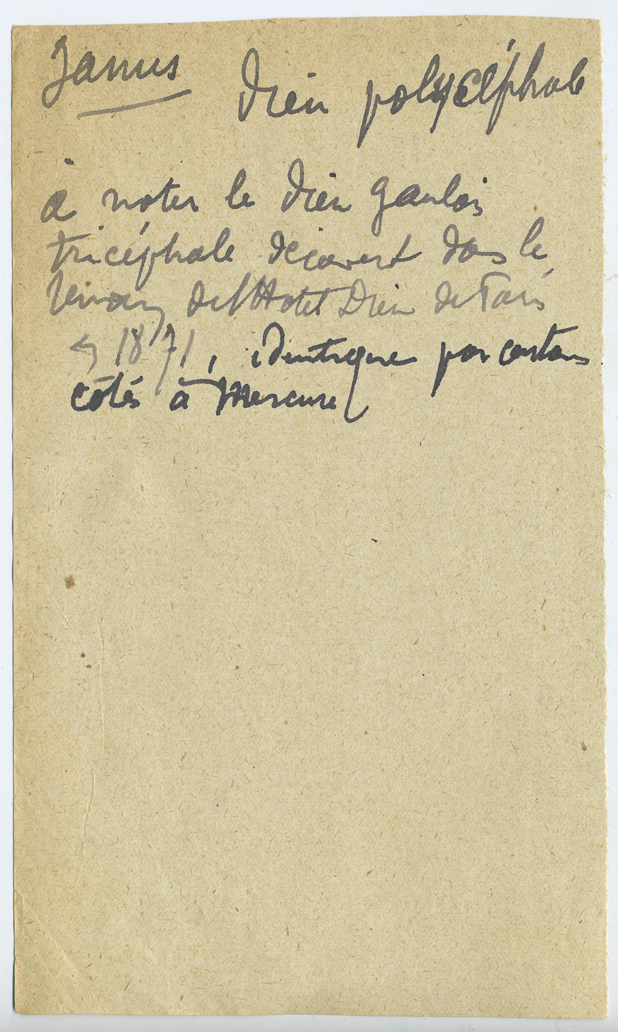 Janus
Dieu polycéphale
à noter le dieu gaulois
tricéphale découvert dans le
de l'Hotel Dieu de Paris
en 1871, identique par certains
côtés à Mercure